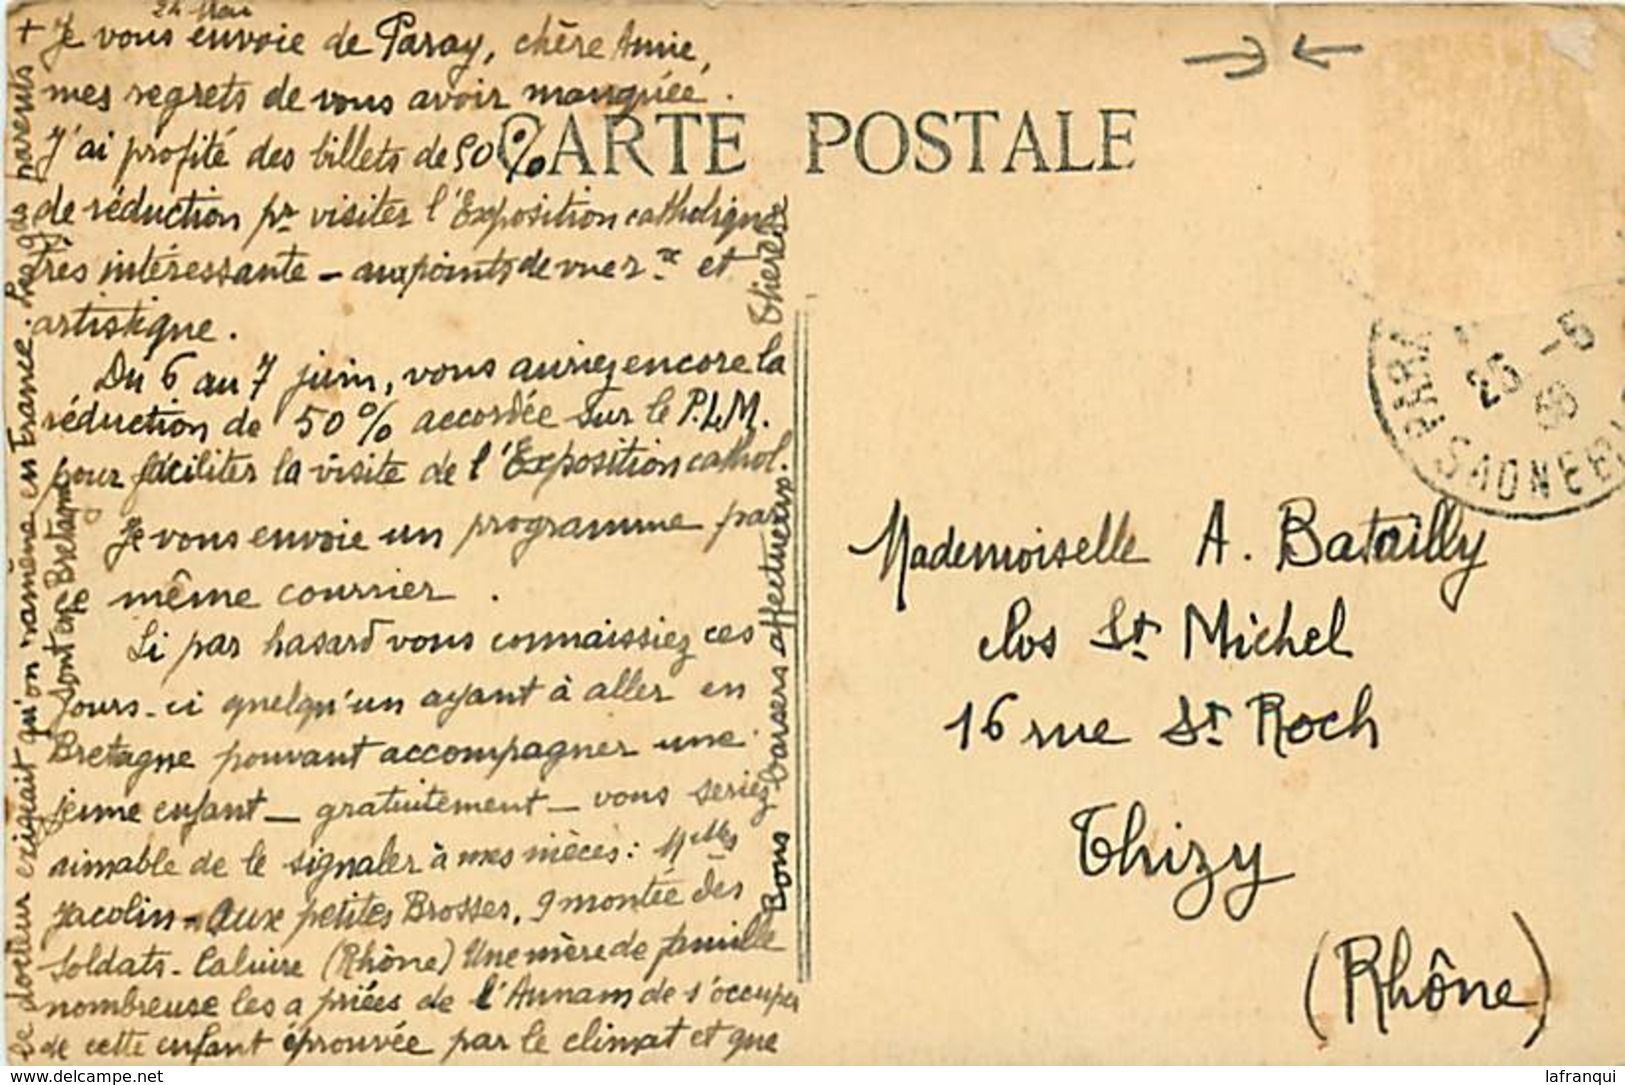 24 Mai
+ Je vous envoie de Paray, chère Annie,
mes regrets de vous avoir manquée.
J'ai profité des billets de 50%
de réduction pr visiter l'Exposition catholique
très intéressante - aux points de vue r.se et
artistique.
Du 6 au 7 juin, vous auriez encore la
réduction de 50% accordée sur le P.L.M.
pour faciliter la visite de l'Exposition cathol.
Je vous envoie un programme par
même courrier.
Si par hasard vous connaissiez ces
jours-ci quelqu'un ayant à aller en
Bretagne pouvant accompagner une
jeune enfant - gratuitement - vous seriez
aimable de le signaler à mes nièces : Melles
Jacolin - aux petites Brosses, 9 montée des
Soldats - Caluire (Rhône) Une mère de famille
nombreuse les a priées de l'Annam de s'occuper
de cette enfant éprouvée par le climat et que
le docteur exigeait qu'on ramène en France. Les gds parents
sont en Bretagne
Bons baisers affectueux.
CARTE POSTALE
PARA
25 -5
36
SAONE
Mademoiselle A. Batailly
clos St Michel
16 rue St Roch
Thizy
(Rhône)
www.delcampe.net
lafranqui